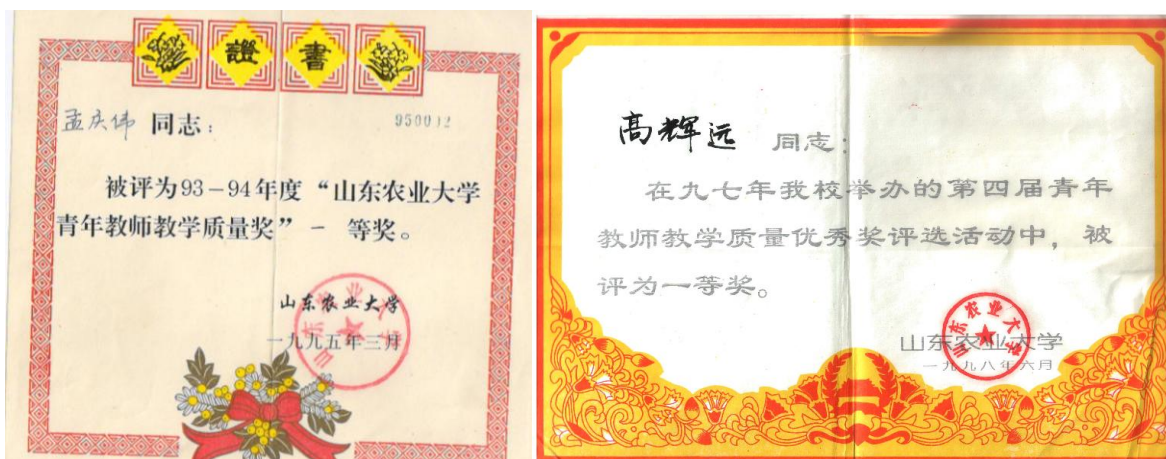 證書
孟庆伟 同志:
950012
被评为93-94年度“山东农业大学
青年教师教学质量奖”一 等奖。
山东农业大学
一九九五年三月
山东农业大学
高辉远 同志:
在九七年我校举办的第四届青年
教师教学质量优秀奖评选活动中，被
评为一等奖。
山东农业大学
一九九八年六月
山东农业大学